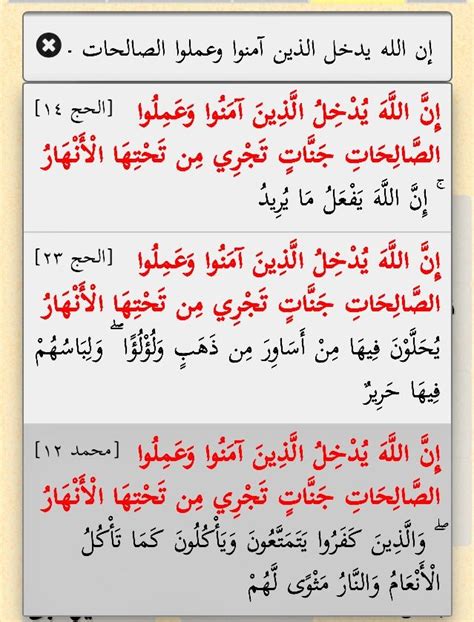 إن الله يدخل الذين آمنوا وعملوا الصالحات .
إِنَّ اللَّهَ يُدْخِلُ الَّذِينَ آمَنُوا وَعَمِلُوا [الحج ١٤]
الصَّالِحَاتِ جَنَّاتٍ تَجْرِي مِن تَحْتِهَا الْأَنْهَارُ
ۚ إِنَّ اللَّهَ يَفْعَلُ مَا يُرِيدُ
إِنَّ اللَّهَ يُدْخِلُ الَّذِينَ آمَنُوا وَعَمِلُوا [الحج ٢٣]
الصَّالِحَاتِ جَنَّاتٍ تَجْرِي مِن تَحْتِهَا الْأَنْهَارُ
يُحَلَّوْنَ فِيهَا مِنْ أَسَاوِرَ مِن ذَهَبٍ وَلُؤْلُؤًا ۖ وَلِبَاسُهُمْ
فِيهَا حَرِيرٌ
إِنَّ اللَّهَ يُدْخِلُ الَّذِينَ آمَنُوا وَعَمِلُوا [محمد ١٢]
الصَّالِحَاتِ جَنَّاتٍ تَجْرِي مِن تَحْتِهَا الْأَنْهَارُ
ۖ وَالَّذِينَ كَفَرُوا يَتَمَتَّعُونَ وَيَأْكُلُونَ كَمَا تَأْكُلُ
الْأَنْعَامُ وَالنَّارُ مَثْوًى لَّهُمْ